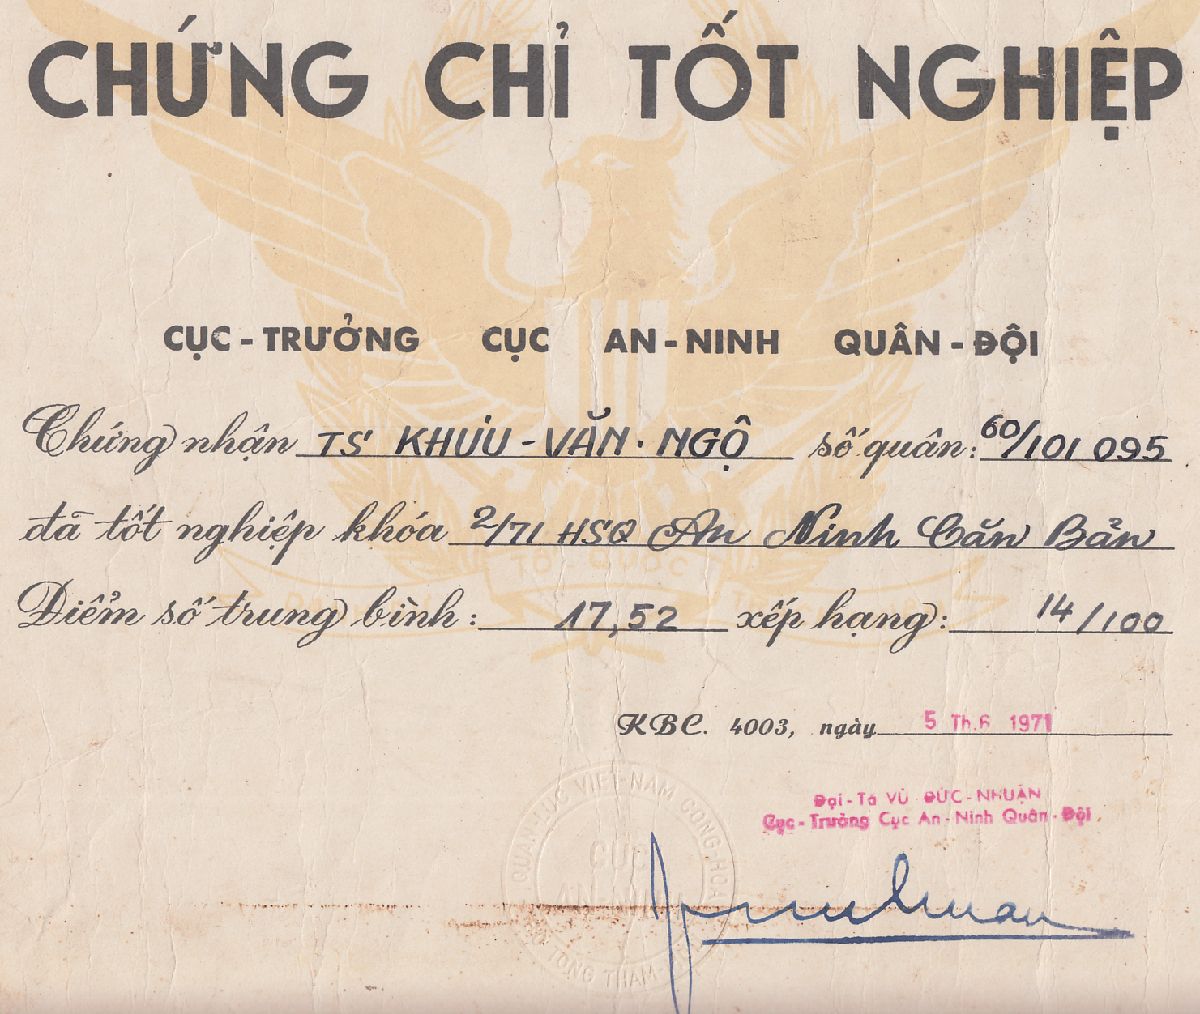 CHỨNG CHỈ TỐT NGHIỆP
CỤC-TRƯỞNG CỤC AN-NINH QUÂN-ĐỘI
Chứng nhận TS KHƯU-VĂN-NGỘ số quân: 60/101 095
đã tốt nghiệp khóa 2/71 HSQ An Ninh Căn Bản
TỔ-QUỐC
Điểm số trung bình: 17,52 xếp hạng: 14/100
KBC. 4003, ngày 5 Th.6 1971
Đại-Tá VŨ ĐỨC-NHUẬN
Cục-Trưởng Cục An-Ninh Quân-Đội
QUÂN LỰC VIỆT-NAM CỘNG-HÒA
CỤC
AN-NINH
TỔNG THAM